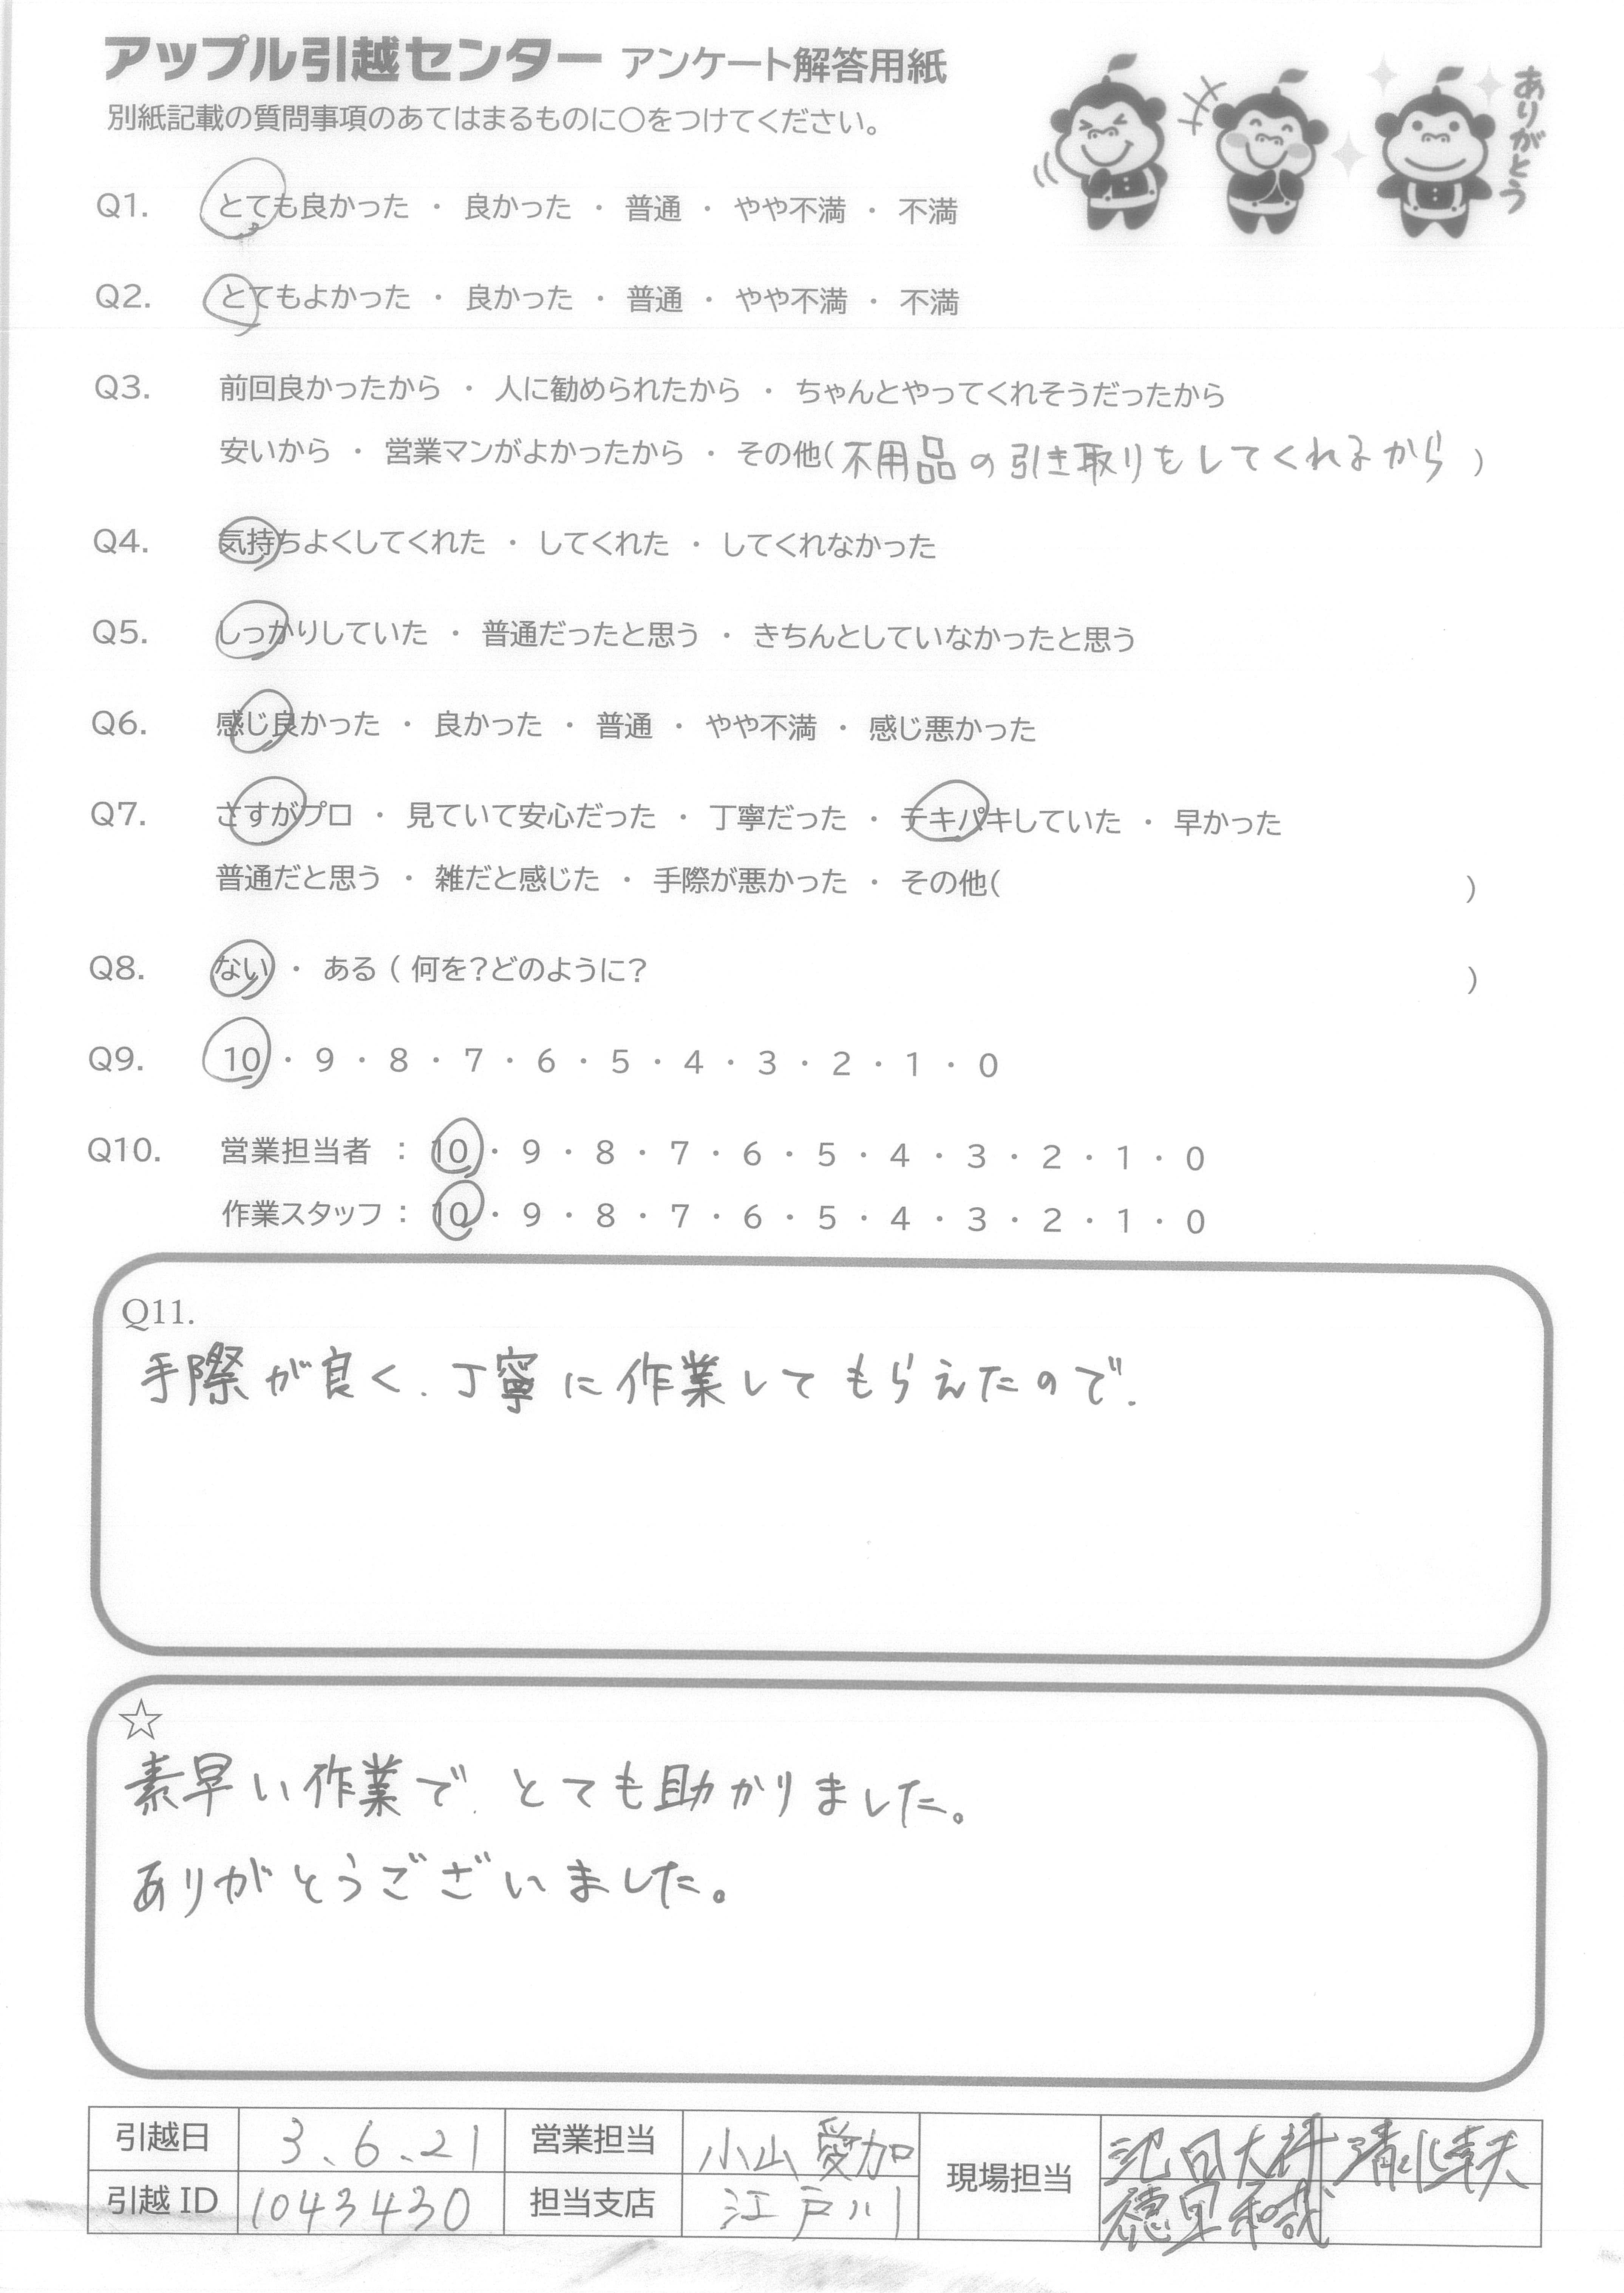 アップル引越センター アンケート解答用紙
別紙記載の質問事項のあてはまるものに○をつけてください。
ありがとう
Q1. とても良かった ・ 良かった ・ 普通 ・ やや不満 ・ 不満
Q2. とてもよかった ・ 良かった ・ 普通 ・ やや不満 ・ 不満
Q3. 前回良かったから ・ 人に勧められたから ・ ちゃんとやってくれそうだったから
安いから ・ 営業マンがよかったから ・ その他(不用品の引き取りをしてくれるから)
Q4. 気持ちよくしてくれた ・ してくれた ・ してくれなかった
Q5. しっかりしていた ・ 普通だったと思う ・ きちんとしていなかったと思う
Q6. 感じ良かった ・ 良かった ・ 普通 ・ やや不満 ・ 感じ悪かった
Q7. さすがプロ ・ 見ていて安心だった ・ 丁寧だった ・ テキパキしていた ・ 早かった
普通だと思う ・ 雑だと感じた ・ 手際が悪かった ・ その他( )
Q8. ない ・ ある ( 何を?どのように? )
Q9. 10 ・ 9 ・ 8 ・ 7 ・ 6 ・ 5 ・ 4 ・ 3 ・ 2 ・ 1 ・ 0
Q10. 営業担当者 : 10 ・ 9 ・ 8 ・ 7 ・ 6 ・ 5 ・ 4 ・ 3 ・ 2 ・ 1 ・ 0
作業スタッフ : 10 ・ 9 ・ 8 ・ 7 ・ 6 ・ 5 ・ 4 ・ 3 ・ 2 ・ 1 ・ 0
Q11.
手際が良く、丁寧に作業してもらえたので。
☆
素早い作業で、とても助かりました。
ありがとうございました。
引越日 3.6.21 営業担当 小山愛加 現場担当
引越ID 1043430 担当支店 江戸川